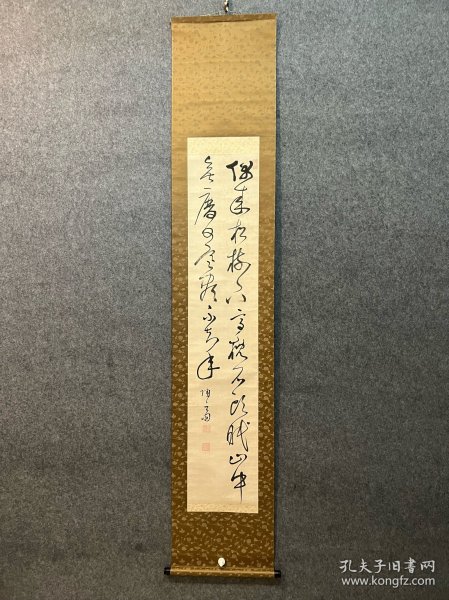 偶来松樹下高枕石头眠山中
無曆日寒盡不知年
孔夫子旧书网
www.kongfz.com